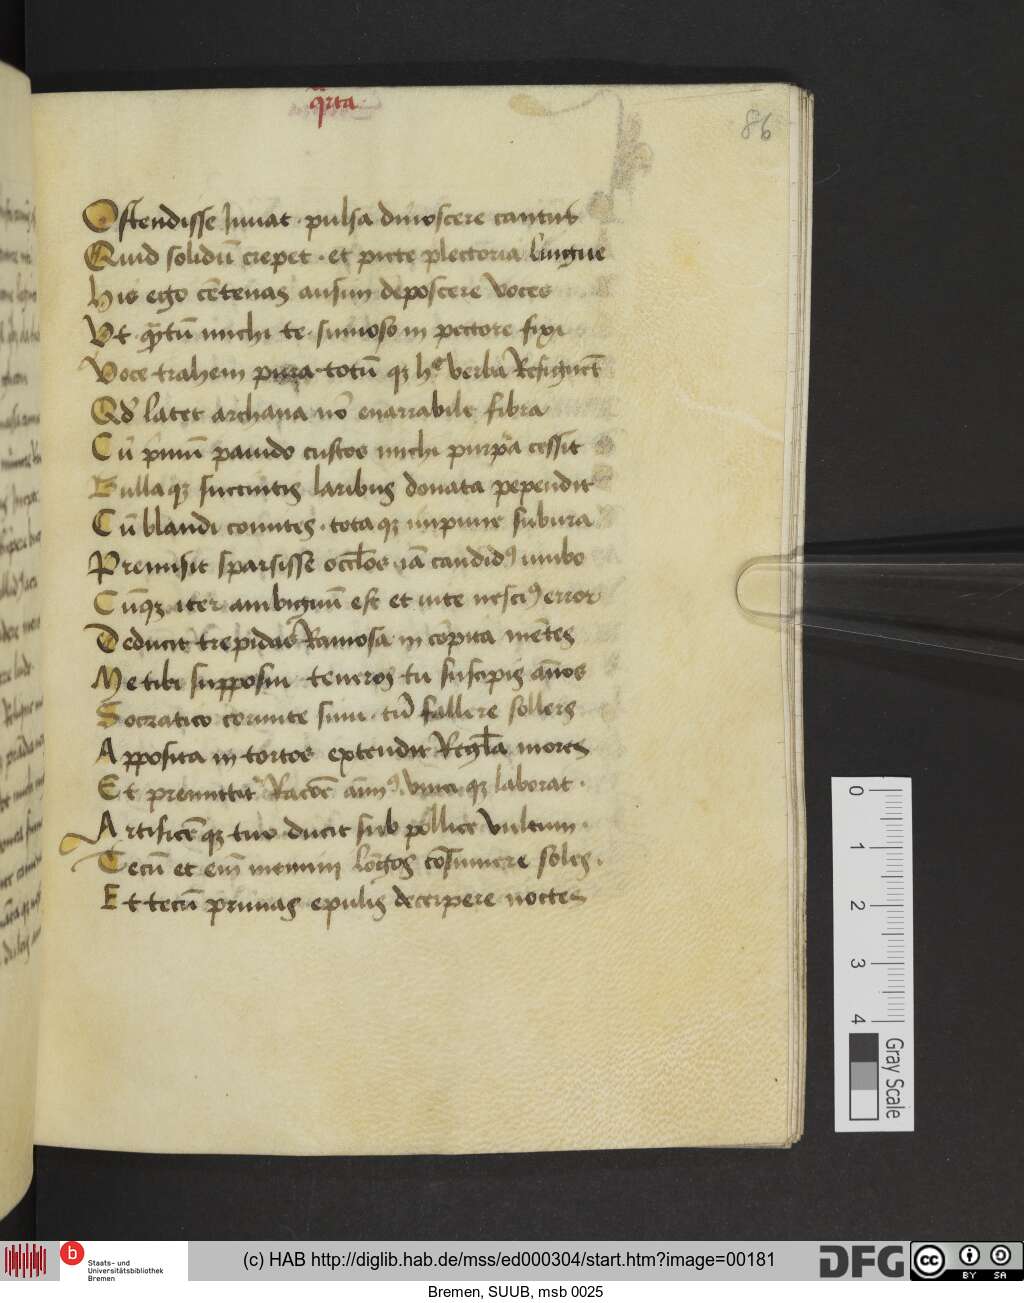 qrta
86
Ostendisse Iuuat . pulsa dinoscere cantus
Quid solidū crepet . et picte plectoria lingue
his ego cētenas ausim deposcere voces
Vt . qᷓtū michi te . sinuoso in pectore fixi
Voce traham pura totū qꝫ hͤ verba Resignēt
Qd' latet archana nō enarrabile fibra
Cū pͥmū pauido custos michi purpᷓa cessit
Bullaqꝫ succintis laribus donata pependit
Cū blandi comites . totaqꝫ inpune subura
Premisit sparsisse occl̄os iā candidꝰ umbo
Cūqꝫ iter ambiguū est et vite nesciꝰ error
Deducit trepidas Ramosa in cōpita mētes
Me tibi supposui teneros tu suscipis ānos
Socratico cornute sinu . tū fallere sollers
Apposita in tortos extendit Regl̄a mores
Et premittit Racōe aīmꝰ vinci qꝫ laborat .
Artificēqꝫ tuo ducit sub pollice vultum .
Tecū et eīm memini lōgos cōsumere soles .
Et tecū primas epulis decerpere noctes
0
1
2
3
4
Gray Scale
b
Staats- und
Universitätsbibliothek
Bremen
(c) HAB http://diglib.hab.de/mss/ed000304/start.htm?image=00181
DFG
cc
BY SA
Bremen, SUUB, msb 0025